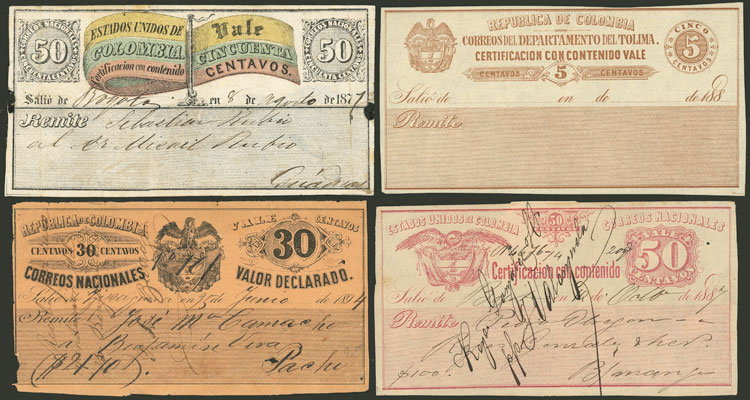 CORREOS NACIONALES
50
CINCUENTA CENTAVOS
ESTADOS UNIDOS DE
COLOMBIA.
Certificacion con contenido
Vale
CINCUENTA
CENTAVOS.
CORREOS NACIONALES
50
CINCUENTA CENTAVOS
Salió de Bogotá en 8 de agosto de 1877
Remite Sebastian Rubio
al Sr Rubio
REPUBLICA DE COLOMBIA
CORREOS DEL DEPARTAMENTO DEL TOLIMA.
CERTIFICACION CON CONTENIDO VALE
CENTAVOS 5 CENTAVOS
CINCO
5
CENTAVOS
Salió de en de 188
Remite
REPÚBLICA DE COLOMBIA
CENTAVOS 30 CENTAVOS
CORREOS NACIONALES.
VALE CENTAVOS
30
VALOR DECLARADO.
Salió de en de Junio de 1894
Remite José Ma Camacho
a Benjamin
ESTADOS UNIDOS DE COLOMBIA
50
CORREOS NACIONALES
Certificacion con contenido
VALE
50
CENTAVOS
Salió de de Octe de 1887
Remite
a Gonzalez
$100.